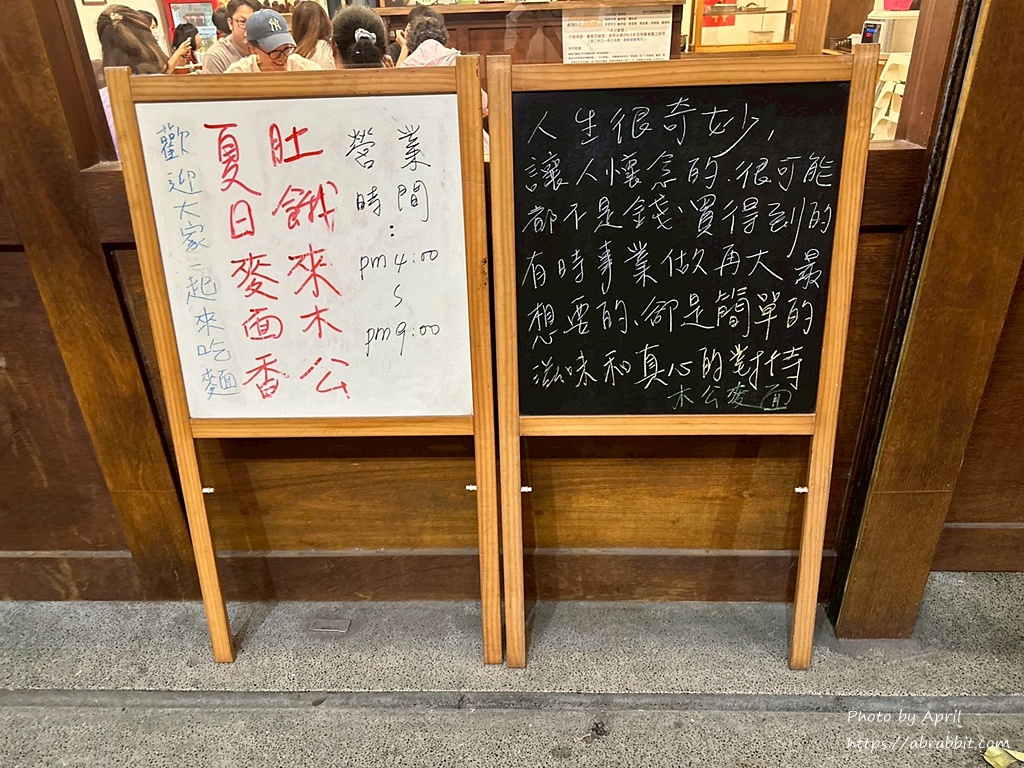 營業
時間:
pm 4:00
~
pm 9:00
肚餓來木公
夏日麥面香
歡迎大家一起來吃麵
人生很奇妙,
讓人懷念的.很可能
都不是錢買得到的
有時事業做再大 最
想要的、卻是簡單的
滋味和真心的對待
木公麥面
NY
Photo by April
https://abrabbit.com